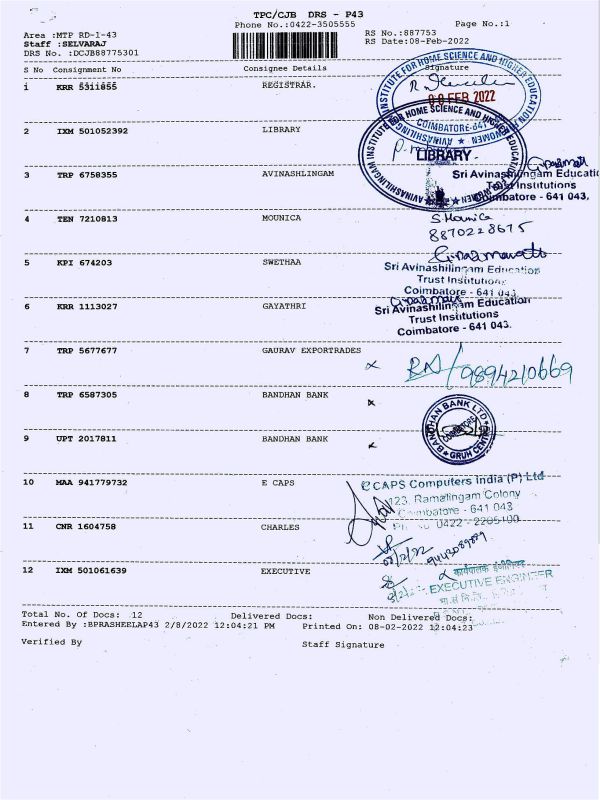 TPC/CJB DRS - P43
Phone No.:0422-3505555 Page No.:1
Area :MTP RD-1-43 RS No.:887753
Staff :SELVARAJ RS Date:08-Feb-2022
DRS No. :DCJB88775301
S No Consignment No Consignee Details Signature
1 KRR 5311855 REGISTRAR.
INSTITUTE FOR HOME SCIENCE AND HIGHER EDUCATION
08 FEB 2022
COIMBATORE-641
AVINASHILINGAM WOMEN
2 IXM 501052392 LIBRARY
AVINASHILINGAM INSTITUTE FOR HOME SCIENCE AND HIGHER EDUCATION
LIBRARY
3 TRP 6758355 AVINASHLINGAM
Sri Avinashilingam Educatio
Trust Institutions
Coimbatore - 641 043,
4 TEN 7210813 MOUNICA
S.Mounica
8870228675
5 KPI 674203 SWETHAA
Sri Avinashilingam Education
Trust Institutions
Coimbatore - 641 043
6 KRR 1113027 GAYATHRI
Sri Avinashilingam Education
Trust Institutions
Coimbatore - 641 043.
7 TRP 5677677 GAURAV EXPORTRADES
9894210669
8 TRP 6587305 BANDHAN BANK
BANDHAN BANK LTD
COIMBATORE
GRUH CENTRE
9 UPT 2017811 BANDHAN BANK
10 MAA 941779732 E CAPS
CAPS Computers India (P) Ltd
123, Ramalingam Colony
Coimbatore - 641 043
0422 - 2205100
11 CNR 1604758 CHARLES
08/2/22
12 IXM 501061639 EXECUTIVE
कार्यपालक इंजीनियर
EXECUTIVE ENGINEER
Total No. Of Docs: 12 Delivered Docs: Non Delivered Docs:
Entered By :BPRASHEELAP43 2/8/2022 12:04:21 PM Printed On: 08-02-2022 12:04:23
Verified By Staff Signature